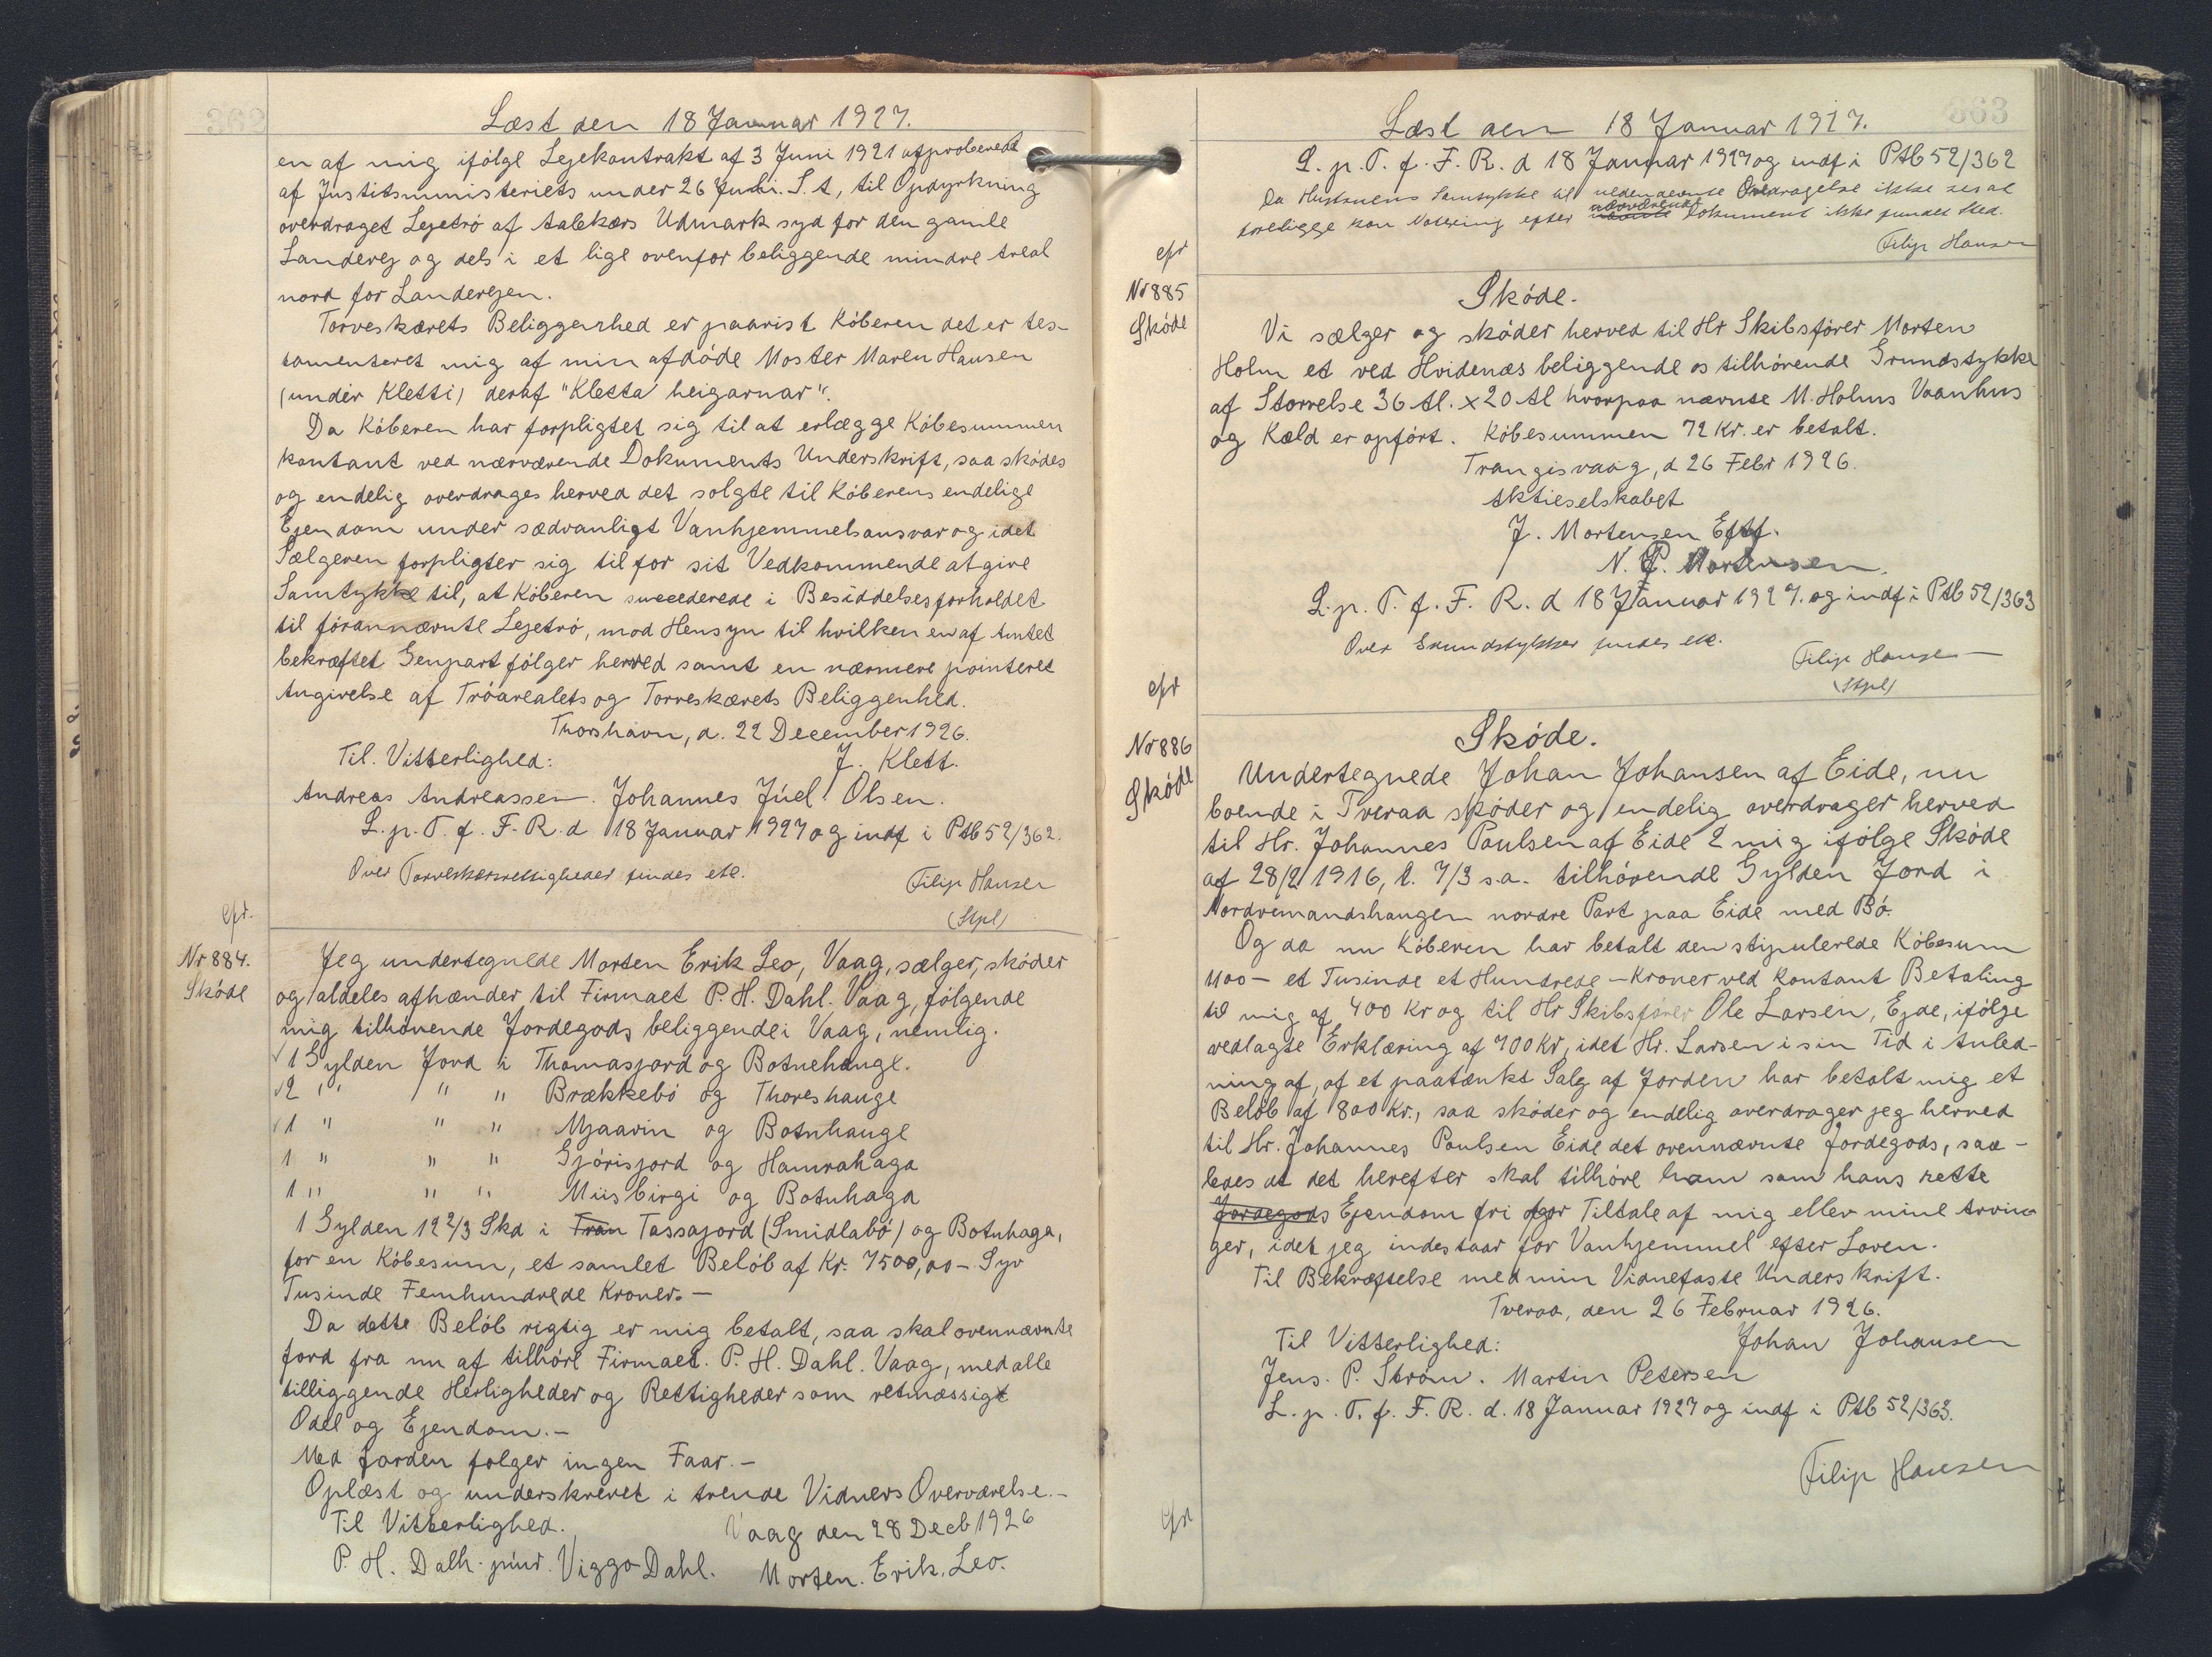 362
Læst den 18 Januar 1927.
en af mig ifölge Lejekontrakt af 3 Juni 1921 approberedt
af Justitsministeriets under 26 Juli. S. A, til Opdyrkning
overdraget Lejetrö af Aalekærs Udmark syd for den gamle
Landevej og dels i et lige ovenfor beliggende mindre Areal
nord for Landevejen.
Torveskærets Beliggenhed er paavist Köberen det er tes-
tamenteret mig af min afdöde Moster Maren Hansen
(undir Kletti) deraf "Kletta heigarnar".
Da Köberen har forpligtet sig til at erlægge Köbesummen
kontant ved nærværende Dokuments Underskrift, saa sködes
og endelig overdrages herved det solgte til Köberens endelige
Ejendom under sædvanligt Vanhjemmelsansvar og idet
Sælgeren forpligter sig til for sit Vedkommende at give
Samtykke til, at Köberen succederede i Besiddelsesforholdet
til förannævnte Lejetrö, mod Hensyn til hvilken en af Amtet
bekræftet Genpart fölger herved samt en nærmere pointeret
Angivelse af Tröarealets og Torveskærets Beliggenhed.
Thorshavn, d. 22 December 1926.
Til Vitterlighed: J. Klett.
Andreas Andreassen. Johannes Júel Olsen.
L. p. T. f. F. R. d 18 Januar 1927 og indf i Ptb 52/362.
Over Torveskærsrettigheder findes ete.
Filip Hansen
(Stpl)
cfr.
Nr 884.
Sköde
Jeg undertegnede Morten Erik Leo, Vaag, sælger, sköder
og aldeles afhænder til Firmaet P. H. Dahl. Vaag, fölgende
mig tilhörende Jordegods beliggende i Vaag, nemlig.
1 Gylden Jord i Thomasjord og Botnehauge.
2 " " " Brækkebö og Thoreshauge
1 " " " Mjaavin og Botnhauge
1 " " " Gjórisjord og Hamrahaga
1 " " " Miisbirgi og Botnhaga
1 Gylden 12 2/3 Skd i Tran Tassajord (Smidlabö) og Botnhaga,
for en Köbesum, et samlet Belöb af Kr. 7500,00 - Syv
Tusinde Femhundrede Kroner. -
Da dette Belöb rigtig er mig betalt, saa skal ovennævnte
Jord fra nu af tilhöre Firmaet. P. H. Dahl. Vaag, med alle
tilliggende Herligheder og Rettigheder som retmæssigt
Odel og Ejendom. -
Med Jorden folger ingen Faar. -
Oplæst og underskrevet i trende Vidners Overværelse. -
Til Vitterlighed. Vaag den 28 Decb 1926
P. H. Dalh. junr. Viggo Dahl. Morten. Erik. Leo.
363
Læst den 18 Januar 1927.
L. p. T. f. F. R. d 18 Januar 1927 og indf i Ptb 52/362
Da Hustruens Samtykke til Overdragelse ikke ses at
foreligge kan Notering efter nærværende Dokument ikke finde Sted.
Filip Hansen
cfr
Nr 885
Sköde
Sköde.
Vi sælger og sköder herved til Hr Skibsförer Morten
Holm et ved Hvidenæs beliggende os tilhörende Grundstykke
af Storrelse 36 Al. x 20 Al hvorpaa nævnte M. Holms Vaanhus
og Kæld er opfört. Köbesummen 72 Kr. er betalt.
Trangisvaag, d 26 Febr 1926.
Aktieselskabet
J. Mortensen Eftf.
N. P. Mortensen.
L. p. T. f. F. R. d 18 Januar 1927. og indf i Ptb 52/363
Over Grundstykker findes ete.
Filip Hansen
(Stpl)
cfr
Nr 886
Sköde
Sköde.
Undertegnede Johan Johansen af Eide, nu
boende i Tveraa sköder og endelig overdrager herved
til Hr. Johannes Poulsen af Eide 2 mig ifölge Sköde
af 28/2 1916, l. 7/3 s.a. tilhörende Gylden Jord i
Nordremandshaugen nordre Part paa Eide med Bö.
Og da nu Köberen har betalt den stipulerede Köbesum
1100 - et Tusinde et Hundrede - Kroner ved kontant Betaling
til mig af 400 Kr og til Hr Skibsförer Ole Larsen, Ejde, ifölge
vedlagte Erklæring af 700 Kr, idet Hr. Larsen i sin Tid i Anled-
ning af, af et paatænkt Salg af Jorden har betalt mig et
Belöb af 800 Kr., saa sköder og endelig overdrager jeg herved
til Hr. Johannes Poulsen Eide det ovennævnte Jordegods, saa-
ledes at det herefter skal tilhöre ham som hans rette
Jordegods Ejendom fri for Tiltale af mig eller mine Arvin-
ger, idet jeg indestaar for Vanhjemmel efter Loven.
Til Bekræftelse med min Vidnefaste Underskrift.
Tveraa, den 26 Februar 1926.
Til Vitterlighed: Johan Johansen
Jens. P. Ström. Martin Petersen
L. p. T. f. F. R. d. 18 Januar 1927 og indf i Ptb 52/363.
Filip Hansen
cfr